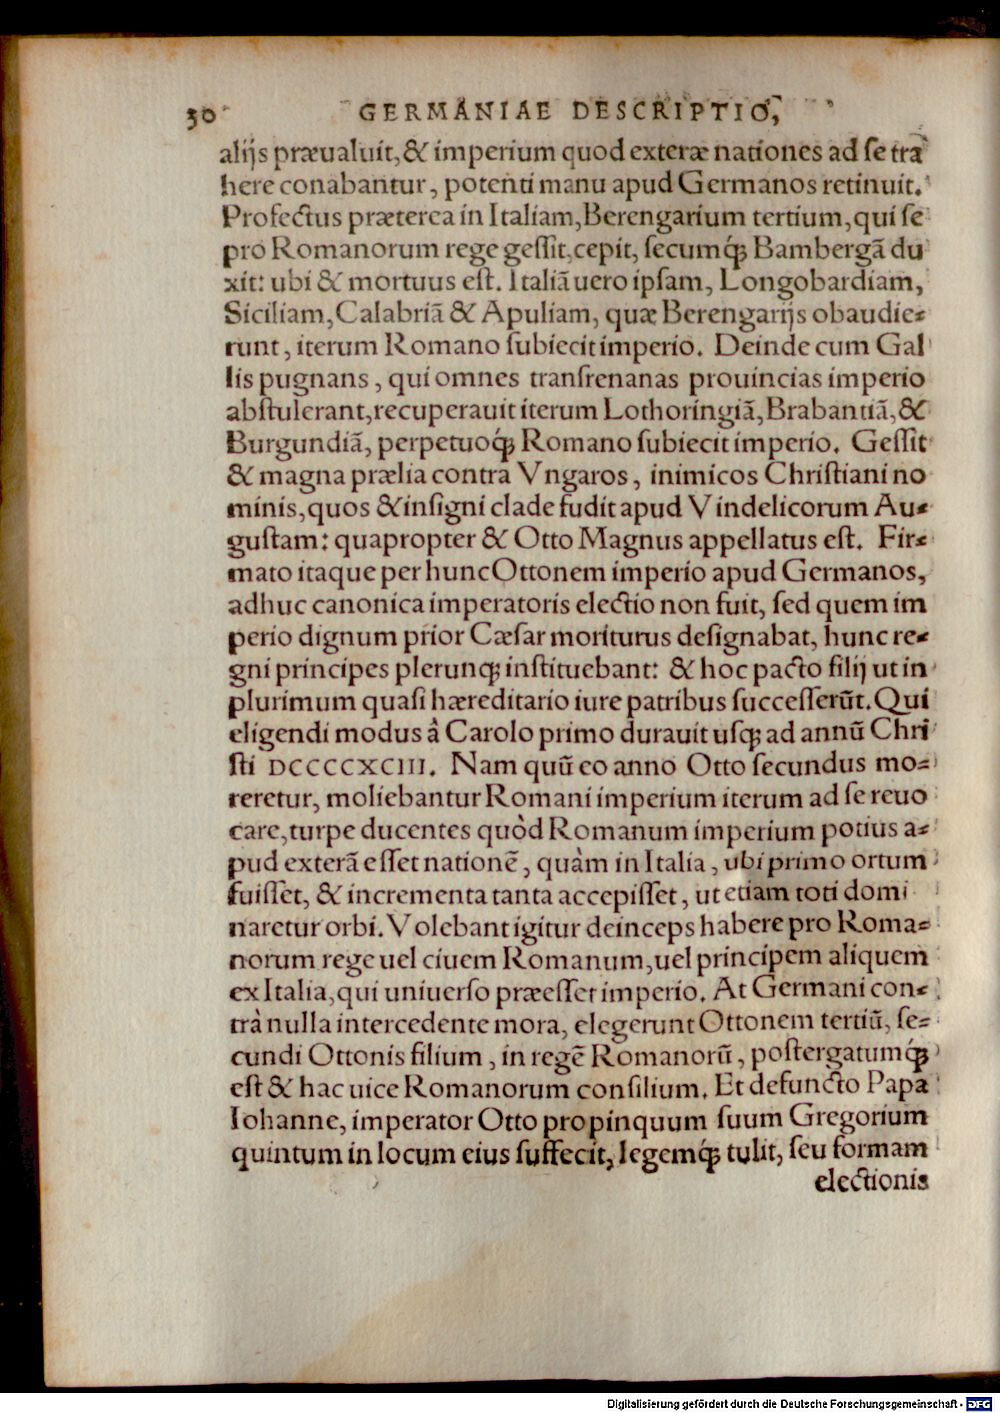 30 GERMANIAE DESCRIPTIO,
alijs præualuit, & imperium quod exteræ nationes ad se tra
here conabantur, potenti manu apud Germanos retinuit.
Profectus præterea in Italiam, Berengarium tertium, qui se
pro Romanorum rege gessit, cepit, secumq́; Bambergã du
xit: ubi & mortuus est. Italiã uero ipsam, Longobardiam,
Siciliam, Calabriã & Apuliam, quæ Berengarijs obaudie-
runt, iterum Romano subiecit imperio. Deinde cum Gal
lis pugnans, qui omnes transrenanas prouincias imperio
abstulerant, recuperauit iterum Lothoringiã, Brabantiã, &
Burgundiã, perpetuoq́; Romano subiecit imperio. Gessit
& magna prælia contra Vngaros, inimicos Christiani no
minis, quos & insigni clade fudit apud Vindelicorum Au-
gustam: quapropter & Otto Magnus appellatus est. Fir-
mato itaque per hunc Ottonem imperio apud Germanos,
adhuc canonica imperatoris electio non fuit, sed quem im
perio dignum prior Cæsar moriturus designabat, hunc re-
gni principes plerunq; instituebant: & hoc pacto filij ut in
plurimum quasi hæreditario iure patribus successerũt. Qui
eligendi modus à Carolo primo durauit usq; ad annũ Chri
sti DCCCCXCIII. Nam quũ eo anno Otto secundus mo-
reretur, moliebantur Romani imperium iterum ad se reuo
care, turpe ducentes quòd Romanum imperium potius a-
pud exterã esset nationẽ, quàm in Italia, ubi primo ortum
fuisset, & incrementa tanta accepisset, ut etiam toti domi
naretur orbi. Volebant igitur deinceps habere pro Roma-
norum rege uel ciuem Romanum, uel principem aliquem
ex Italia, qui uniuerso præesset imperio. At Germani con-
trà nulla intercedente mora, elegerunt Ottonem tertiũ, se-
cundi Ottonis filium, in regẽ Romanorũ, postergatumq́;
est & hac uice Romanorum consilium. Et defuncto Papa
Iohanne, imperator Otto propinquum suum Gregorium
quintum in locum eius suffecit, legemq́; tulit, seu formam
electionis
Digitalisierung gefördert durch die Deutsche Forschungsgemeinschaft - DFG